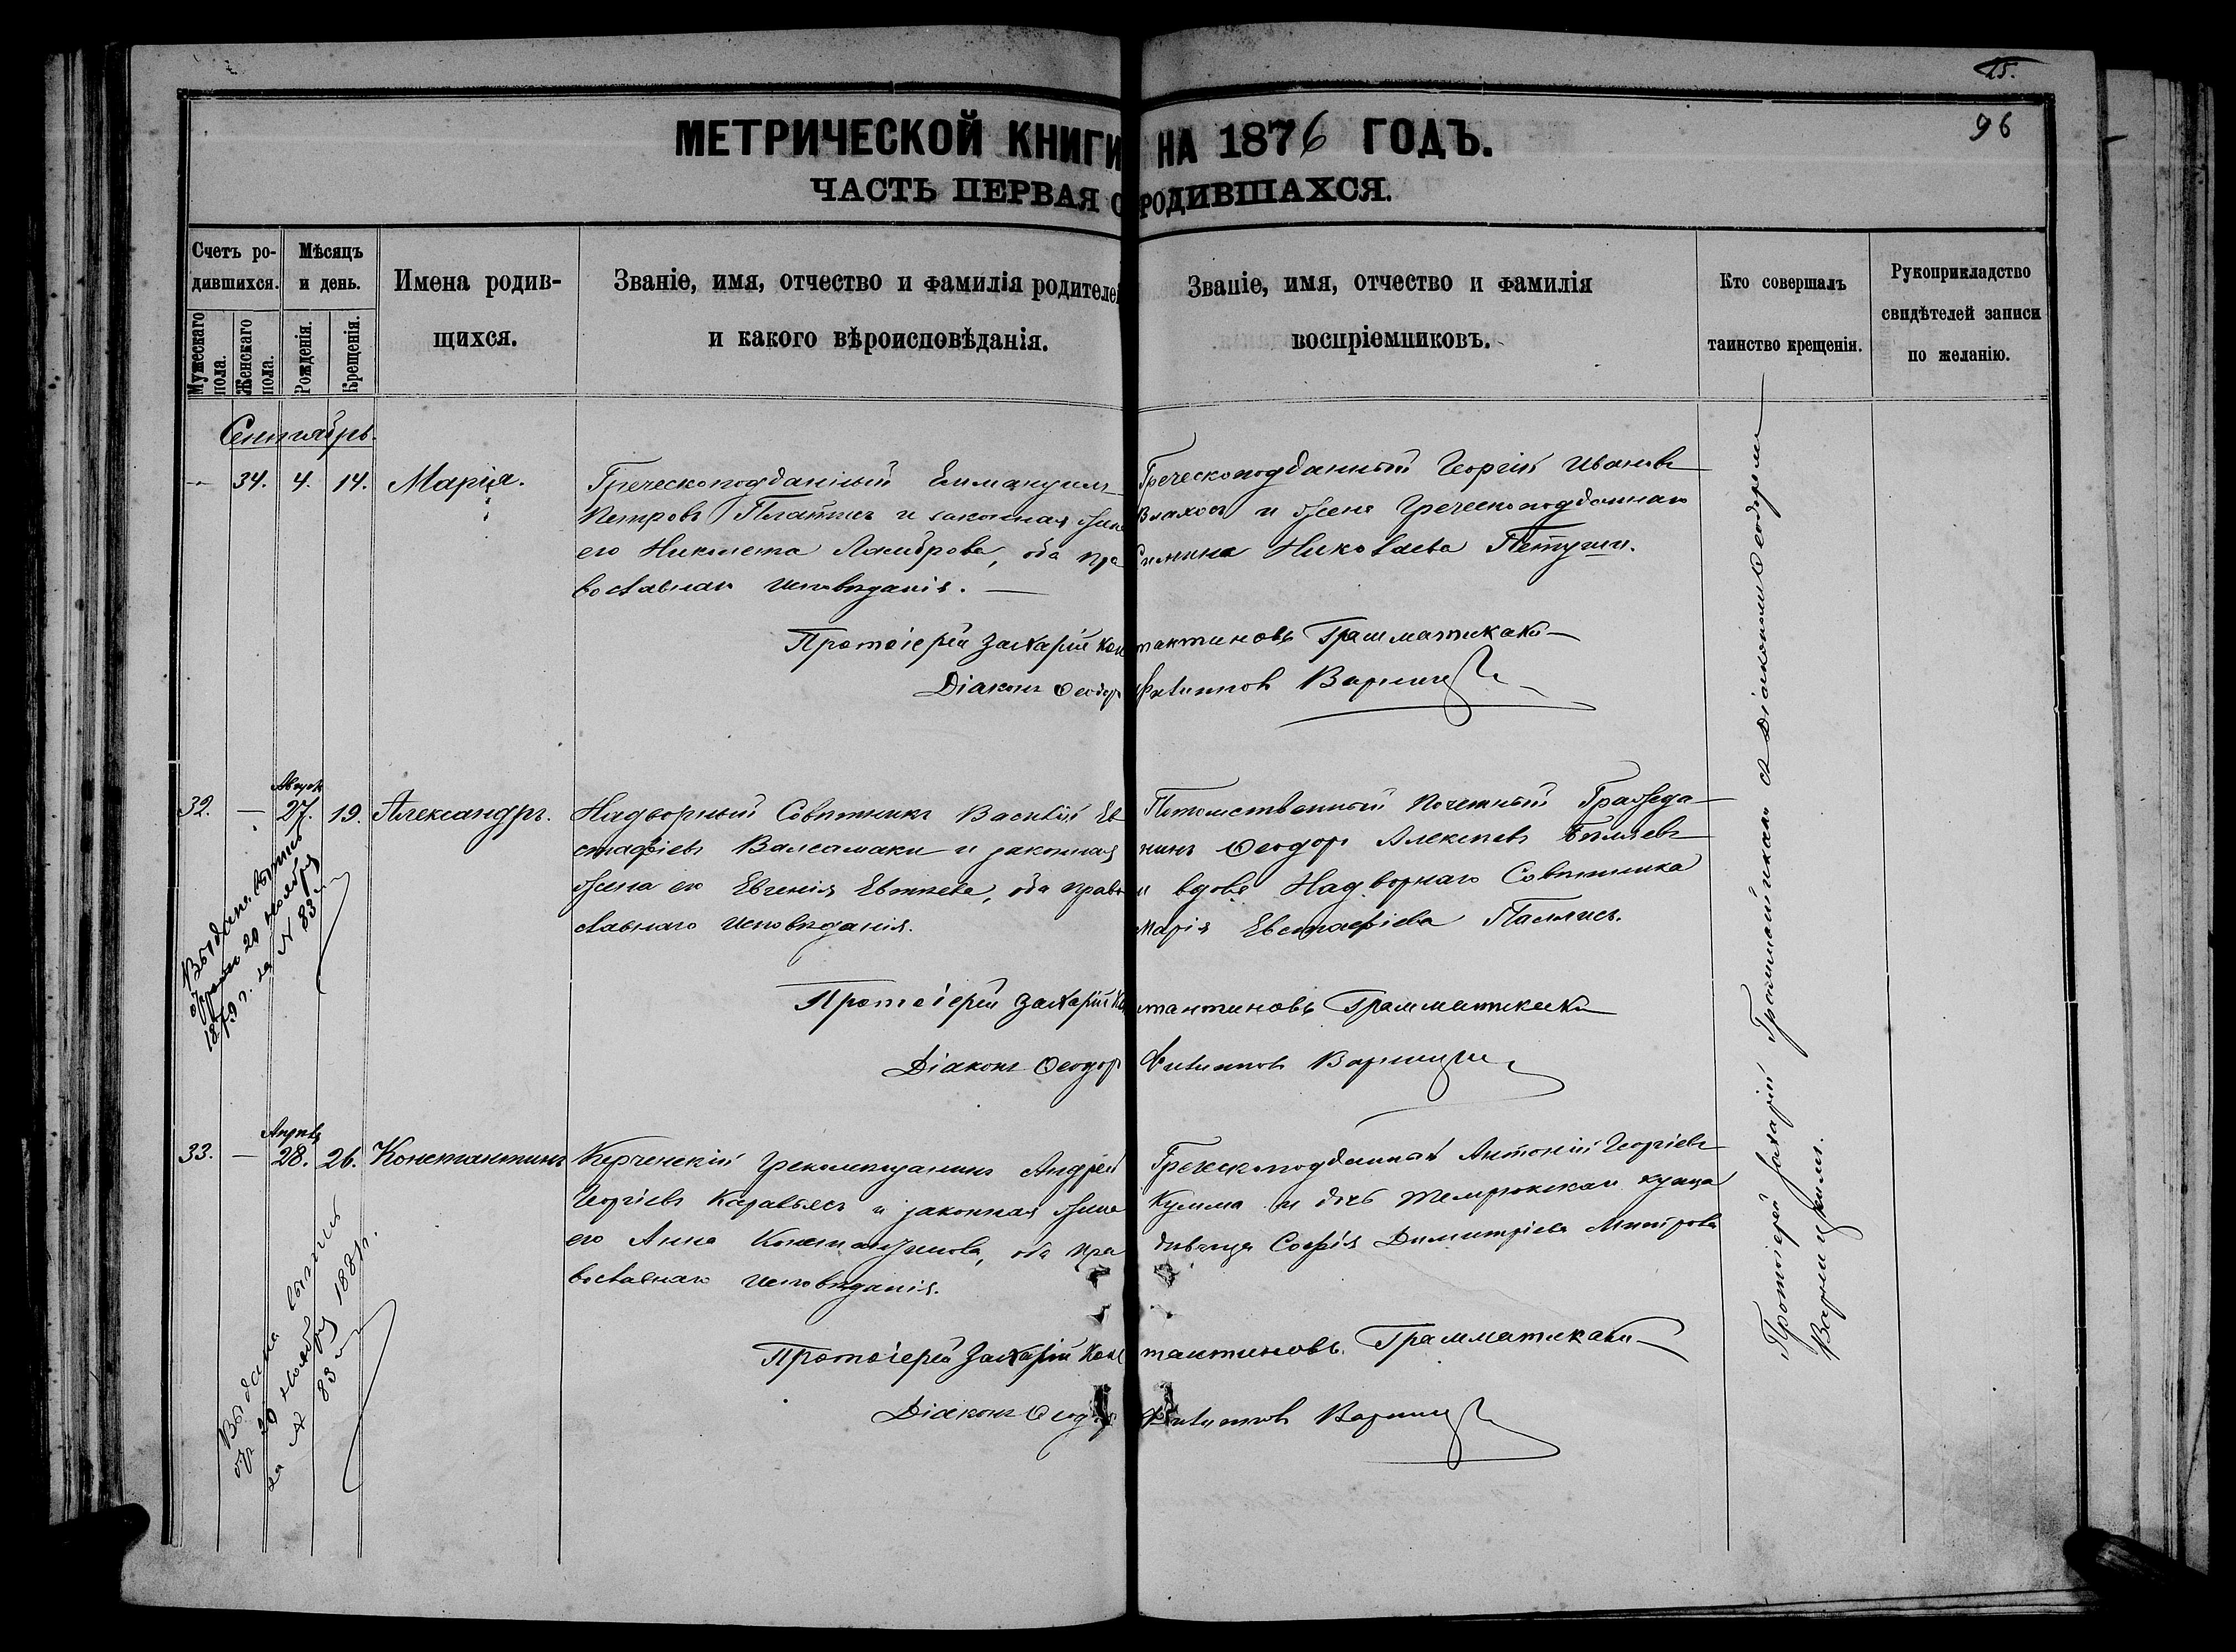 15.
96
МЕТРИЧЕСКОЙ КНИГИ НА 1876 ГОДЪ.
ЧАСТЬ ПЕРВАЯ О РОДИВШАХСЯ.
Счетъ родившихся.
Мужескаго пола.
Женскаго пола.
Мѣсяцъ и день.
Рожденія.
Крещенія.
Имена родив-
щихся.
Званіе, имя, отчество и фамилія родителей
и какого вѣроисповѣданія.
Званіе, имя, отчество и фамилія
воспріемниковъ.
Кто совершалъ
таинство крещенія.
Рукоприкладство
свидѣтелей записи
по желанію.
Сентябрь.
— 34. 4. 14. Марія.
Греческоподданный Еммануилъ
Петровъ Платисъ и законная жена
его Николета Ламброва, оба пра
вославнаго исповѣданія. —
Греческоподданный Георгій Ивановъ
Влахосъ и жена Греческоподданнаго
Николаева
Протоіерей Захарій Константиновъ Грамматикаки
Діаконъ Ѳеодоръ Филиповъ
32. — Августъ 27. 19. Александръ.
Надворный Совѣтникъ Василій Ев
стафіевъ Валсамаки и законная
жена его Евгенія, оба право
славнаго исповѣданія.
Потомственный Почетный Гражда
нинъ Ѳеодоръ Алексѣевъ
и вдова Надворнаго Совѣтника
Марія Евстафіева
Протоіерей Захарій Константиновъ Грамматикаки
Діаконъ Ѳеодоръ Филиповъ
Выдана выпись
20 ноября
1879 г. за № 83
33. — Апрѣль 28. 26. Константинъ
Керченскій грекомѣщанинъ Андрей
Георгіевъ и законная жена
его Анна Константинова, оба пра
вославнаго исповѣданія.
Греческоподданный Антоній Георгіевъ
и дочь Темрюкскаго купца
дѣвица Софія Димитріева Митрова
Протоіерей Захарій Константиновъ Грамматикаки
Діаконъ Ѳеодоръ Филиповъ
Выдана выпись
20 ноября 1881 г.
за № 83
Протоіерей Захарій Грамматикаки съ Діакономъ Ѳеодоромъ